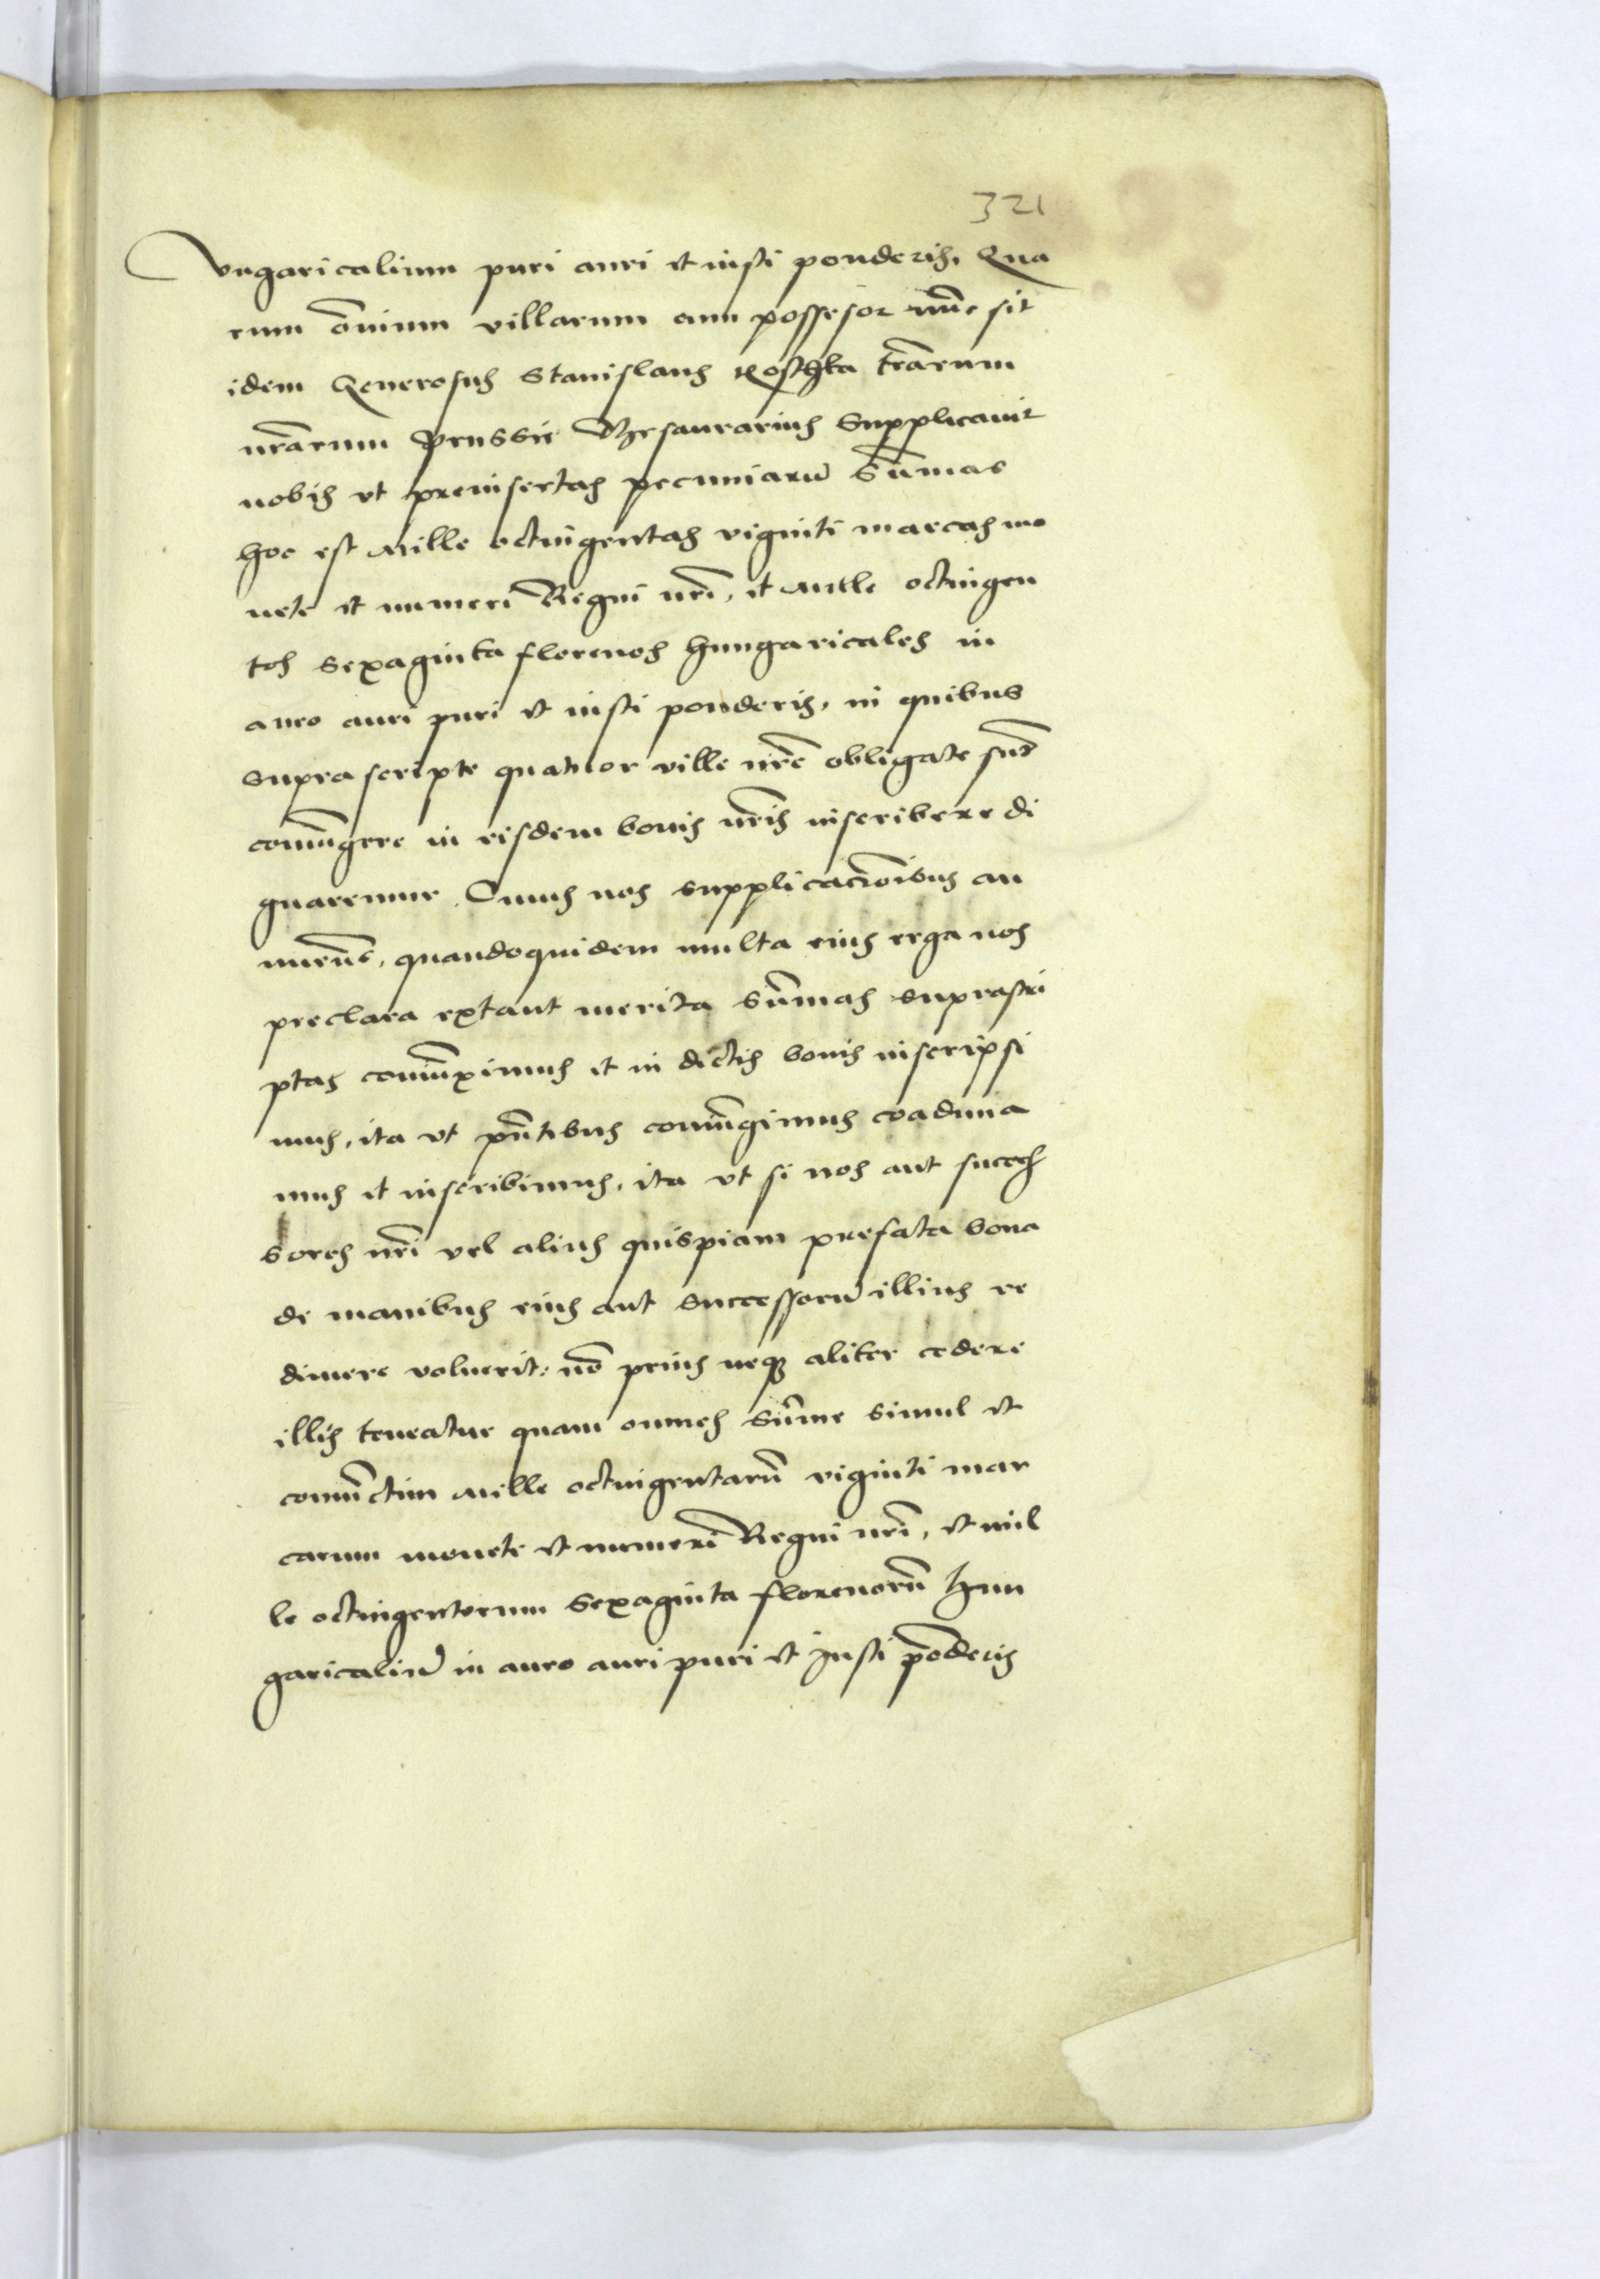 321
Vngaricalium puri auri et iusti ponderis. Qua
rum om̄ium villarum cum possesor nūc sit
idem Generosus Stanislaus Kostka tr̄arum
nr̄arum Prussie Thesaurarius Supplicauit
nobis vt preinsertas pecuniarū Sūmas
hoc est Mille octuigentas viginti marcas mo
nete et numeri Regni nr̄i, et Mille octuigen
tos sexaginta florenos hungaricales in
auro auri puri et iusti ponderis, in quibus
suprascripte quatuor ville nr̄e obligate sūt
coniūgere in eisdem bonis nr̄is inscribere di
gnaremur. Cuius nos supplicac̄ionibus an
nuen̄s, quandoquidem multa eius erga nos
preclara extant merita Sūmas suprascri
ptas coniūximus et in dictis bonis inscripsi
mus, ita vt pn̄tibus coniūgimus coaduna
mus et inscribimus, ita vt si nos aut succes
sores nr̄i vel alius quispiam prefata bona
de manibus eius aut successorū illius re
dimere voluerit: nō prius neqȝ aliter cedere
illis teneatur quam omnes Sūme simul et
coniūctim Mille octuigentarū viginti mar
carum monete et numeri Regni nr̄i, et mil
le octuigentorum Sexaginta florenorū hun
garicaliū in auro auri puri et Justi pōderis